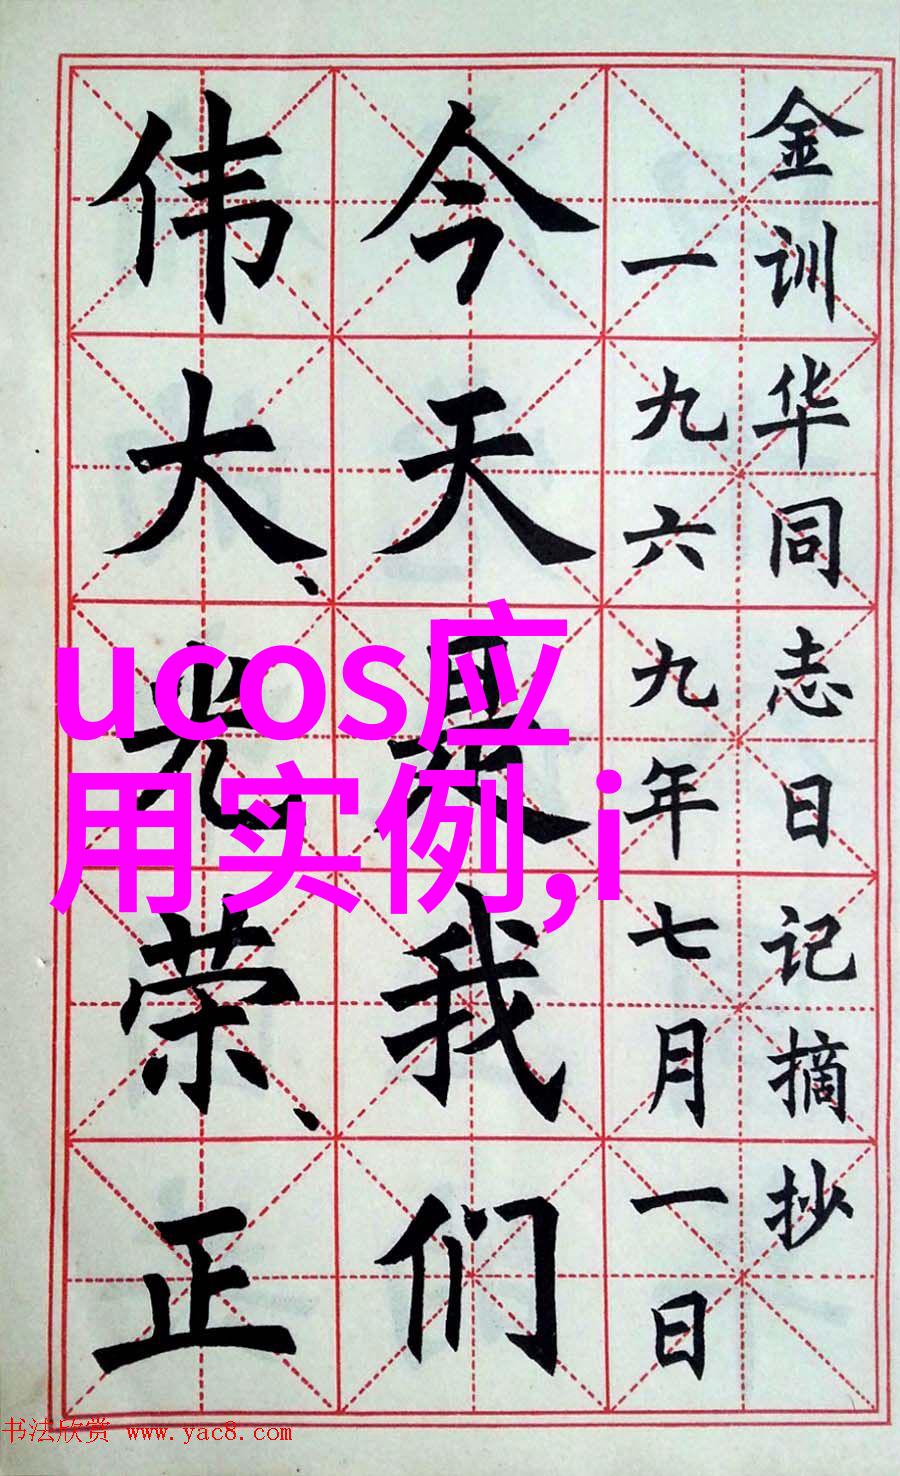 金训华同志日记摘抄
一九六九年七月一日
今天是我们
伟大、光荣、正
ucos应
用实例,i
书法欣赏 www.yac8.com